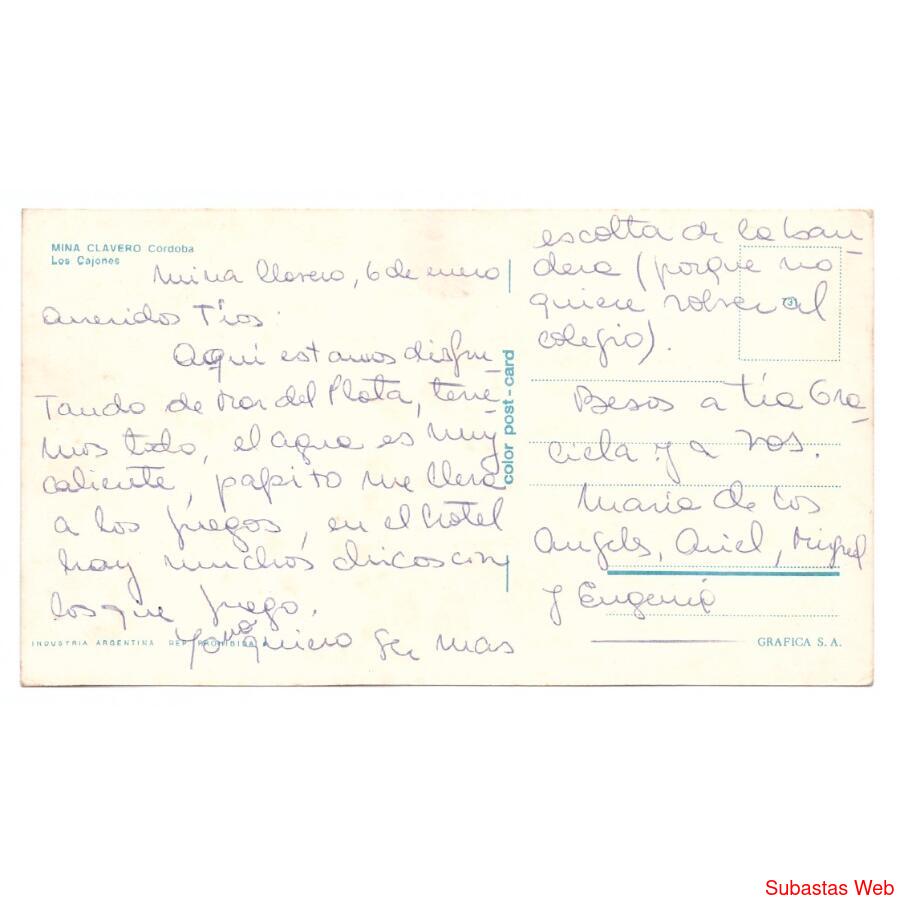 MINA CLAVERO Cordoba
Los Cajones
Mina Clavero, 6 de enero
Queridos Tíos:
Aquí estamos disfru
tando de Mar del Plata, tene-
mos todo, el agua es muy
caliente, papito me lleva
a los juegos, en el hotel
hay muchos chicos con
los que juego.
Yo no quiero ser mas
INDUSTRIA ARGENTINA REP. PROHIBIDA
color post-card
escolta de la ban-
dera (porque no
quiere volver al
colegio).
Besos a tía Gra-
ciela y a vos.
Maria de los
Angeles, Ariel, Miguel
y Eugenio
GRAFICA S.A.
Subastas Web